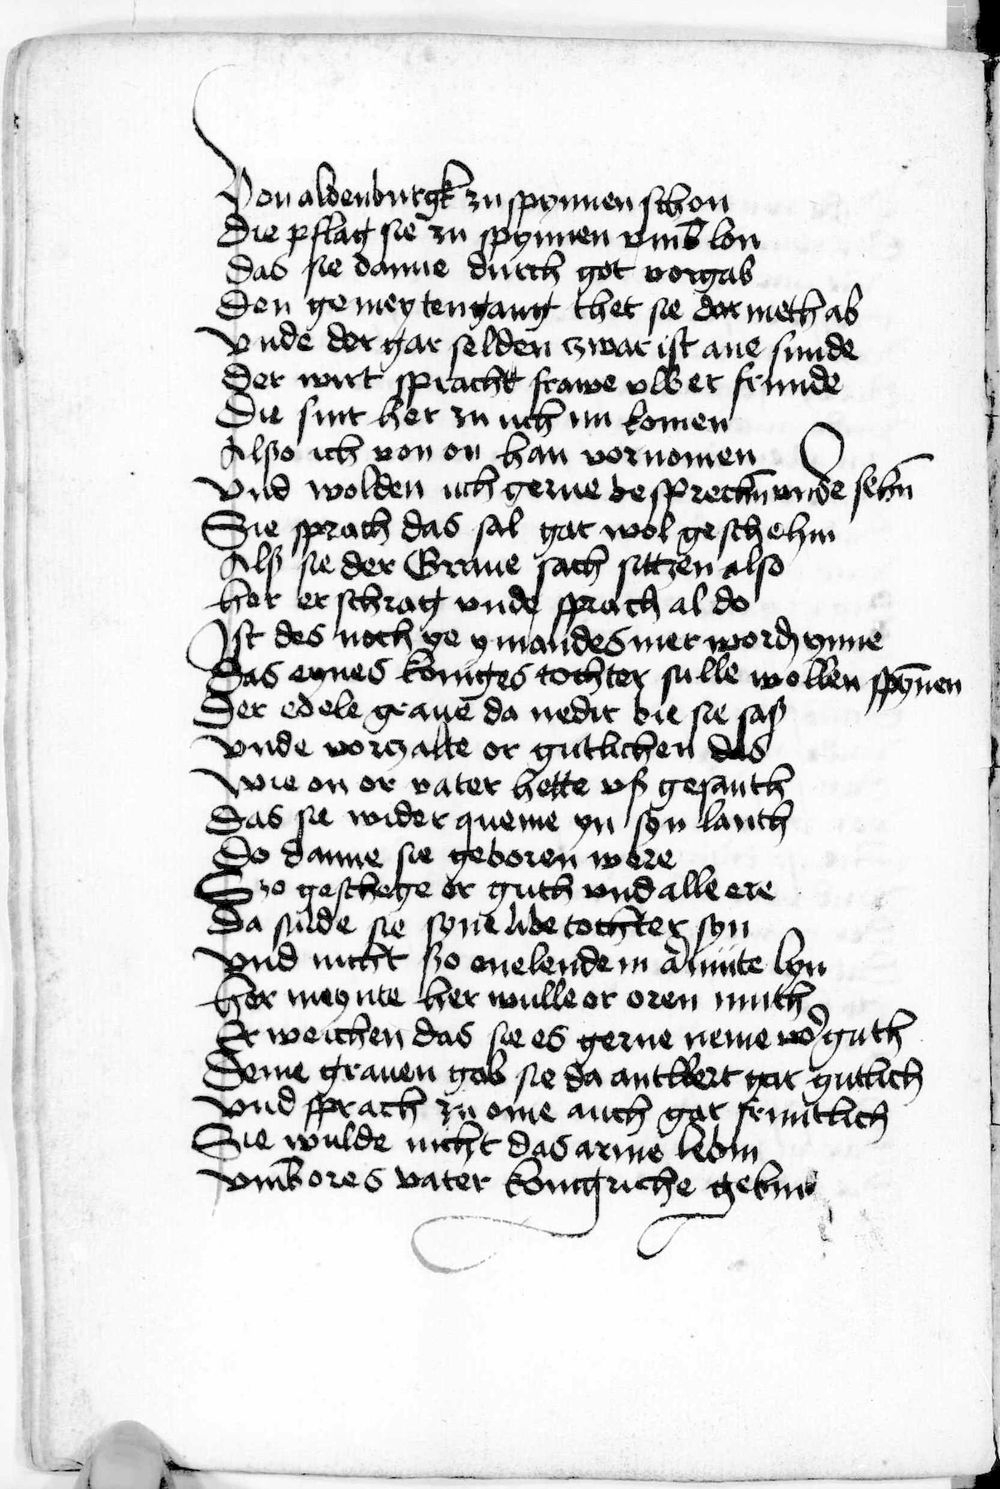 Von aldenburgk zu spynnen schon
Die pflag sie zu spynnen vmb lon
Das sie danne durch got vorgab
Den gemeytengang thet sie dor meth ab
Vnde der gar selden zwar ist ane sunde
Der wirt spracht frawe vlb er frunde
Die sint her zu uch nu komen
Alßo ich von on han vornomen
Vnd wolden uch gerne besprechn̄ vnde sehn̄
Sie sprach das sal gar wol geschehin
Alß sie der Graue sach sittzen also
her er schrag vnde sprach al do
Ist des noch ye ymandes mer worden ynne
Das eynes koniges tochter sulle wollen spȳnen
Der edele graue da nedir bie sie saß
vnde vorczalte or gutlichen das
Wie on or vater hette vß gesanth
Das sie wider queme yn syn lanth
Do danne sie geboren were
Szo geschege or guth vnd alle ere
Da sulde sie syne libe tochter syn
Vnd nicht ßo enelende in armute lyn
her meynte her wulle or oren muth
Er weichen das sie es gerne neme vor guth
Deme grauen gab sie da anttbert gar gutlich
Vnd sprach zu ome auch gar fruntlich
Sie wulde nicht das arme lebin
vmb ores vater konigriche gebin